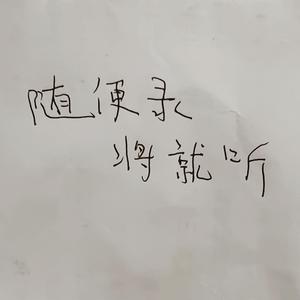 随便录
将就听